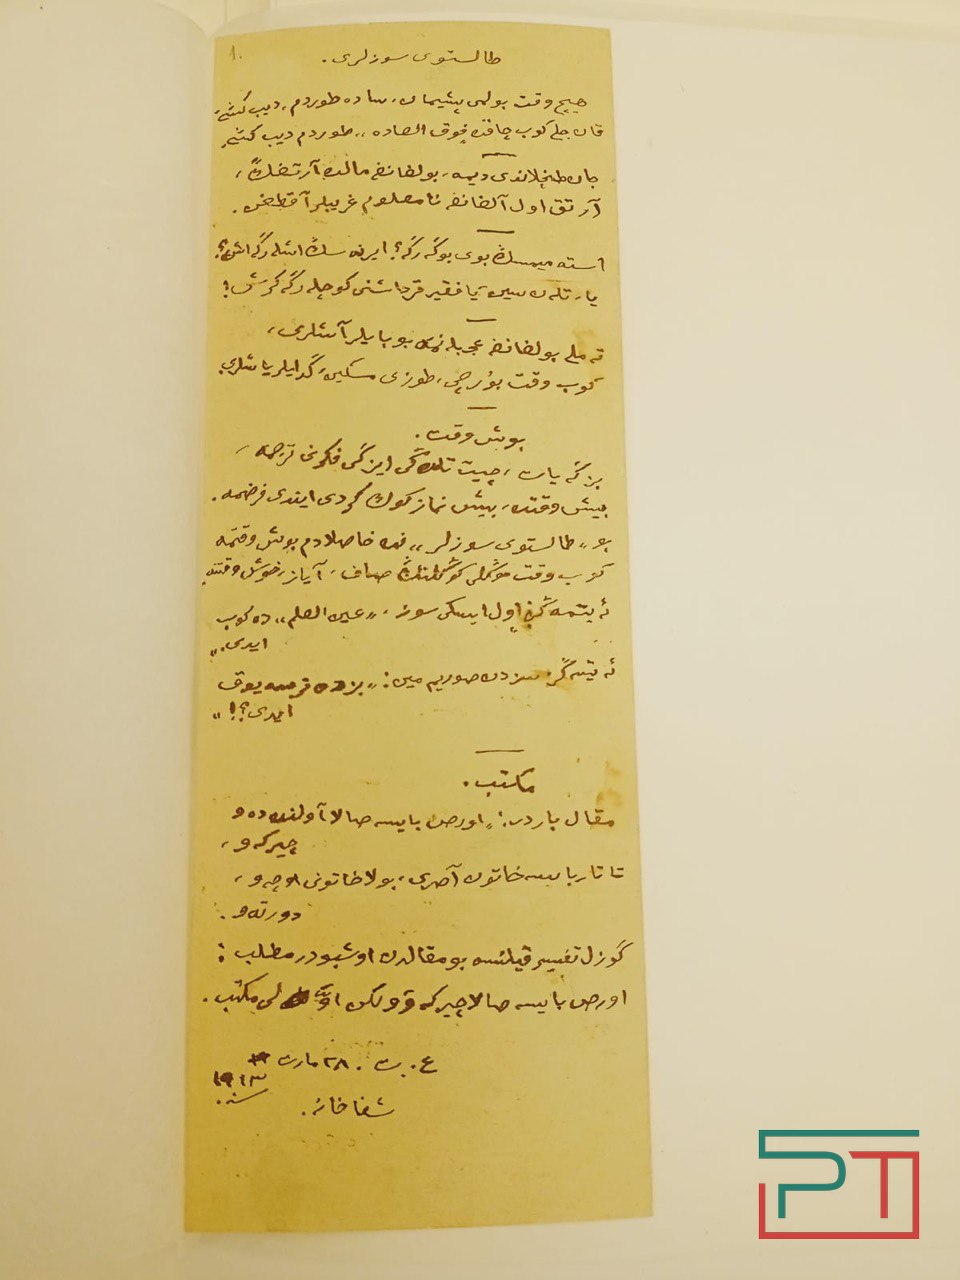 ١.
طالستوی سوزلری.
هیچ وقت بولمی پشیمان، ساده طوردم، دیب کشی،
قان جلی کوب چاقده „فوق العاده“ طوردم دیب کشی.
جان طنچلاندی دیمه، بولغانغه مالده آرتقلق،
آرتق اول آلغانغه نامعلوم غریبلر آقطغن.
استه میمسڭ بوی بوگرگه؟ ایرنه سڭ اشلرگه اش؟
یا، تلەن سین، یا فقیر قرداشنی کوچله رگه گرش!
نه ملی بولغانغه عجبله نمه بو بایلر آشلری،
کوب وقت بورچی، طوزی مسکین، گدایلر یاشلری.
بوش وقت.
بزگه یات، چیت تلده گی ایزگی فکرنی ترجمه،
بیش وقتده، بیش نماز کوك گردی ایندی فرضمه.
بو „طالستوی سوزلر“ نده خاصلادم بوش وقتمه
کوب وقت موڭلی کوڭلمنڭ صاف، آیاز، خوش وقتنه
ئه یتمه گز: اول ایسکی سوز، „عین العلم“ ده کوب
ایدی.“
ئه یتسه گز، سزدن صوریم مین: „بزده نرسه یوق
ایدی؟!“
مکتب.
مقال باردر: „اورص بایسه صالا آولنده و
چیرکه و،
تاتار بایسه خاتون آصری، بولا خاتونی اوچه و،
دورته و.
گوزل تفسیر قیلنسه بو مقالدن اوشبودر مطلب:
اورص بایسه صالا چیرکه و و لکن اوڭ لی مکتب.
ع. ت. ٢٨ مارت
١٩١٣
سنه.
شفاخانه.
PT